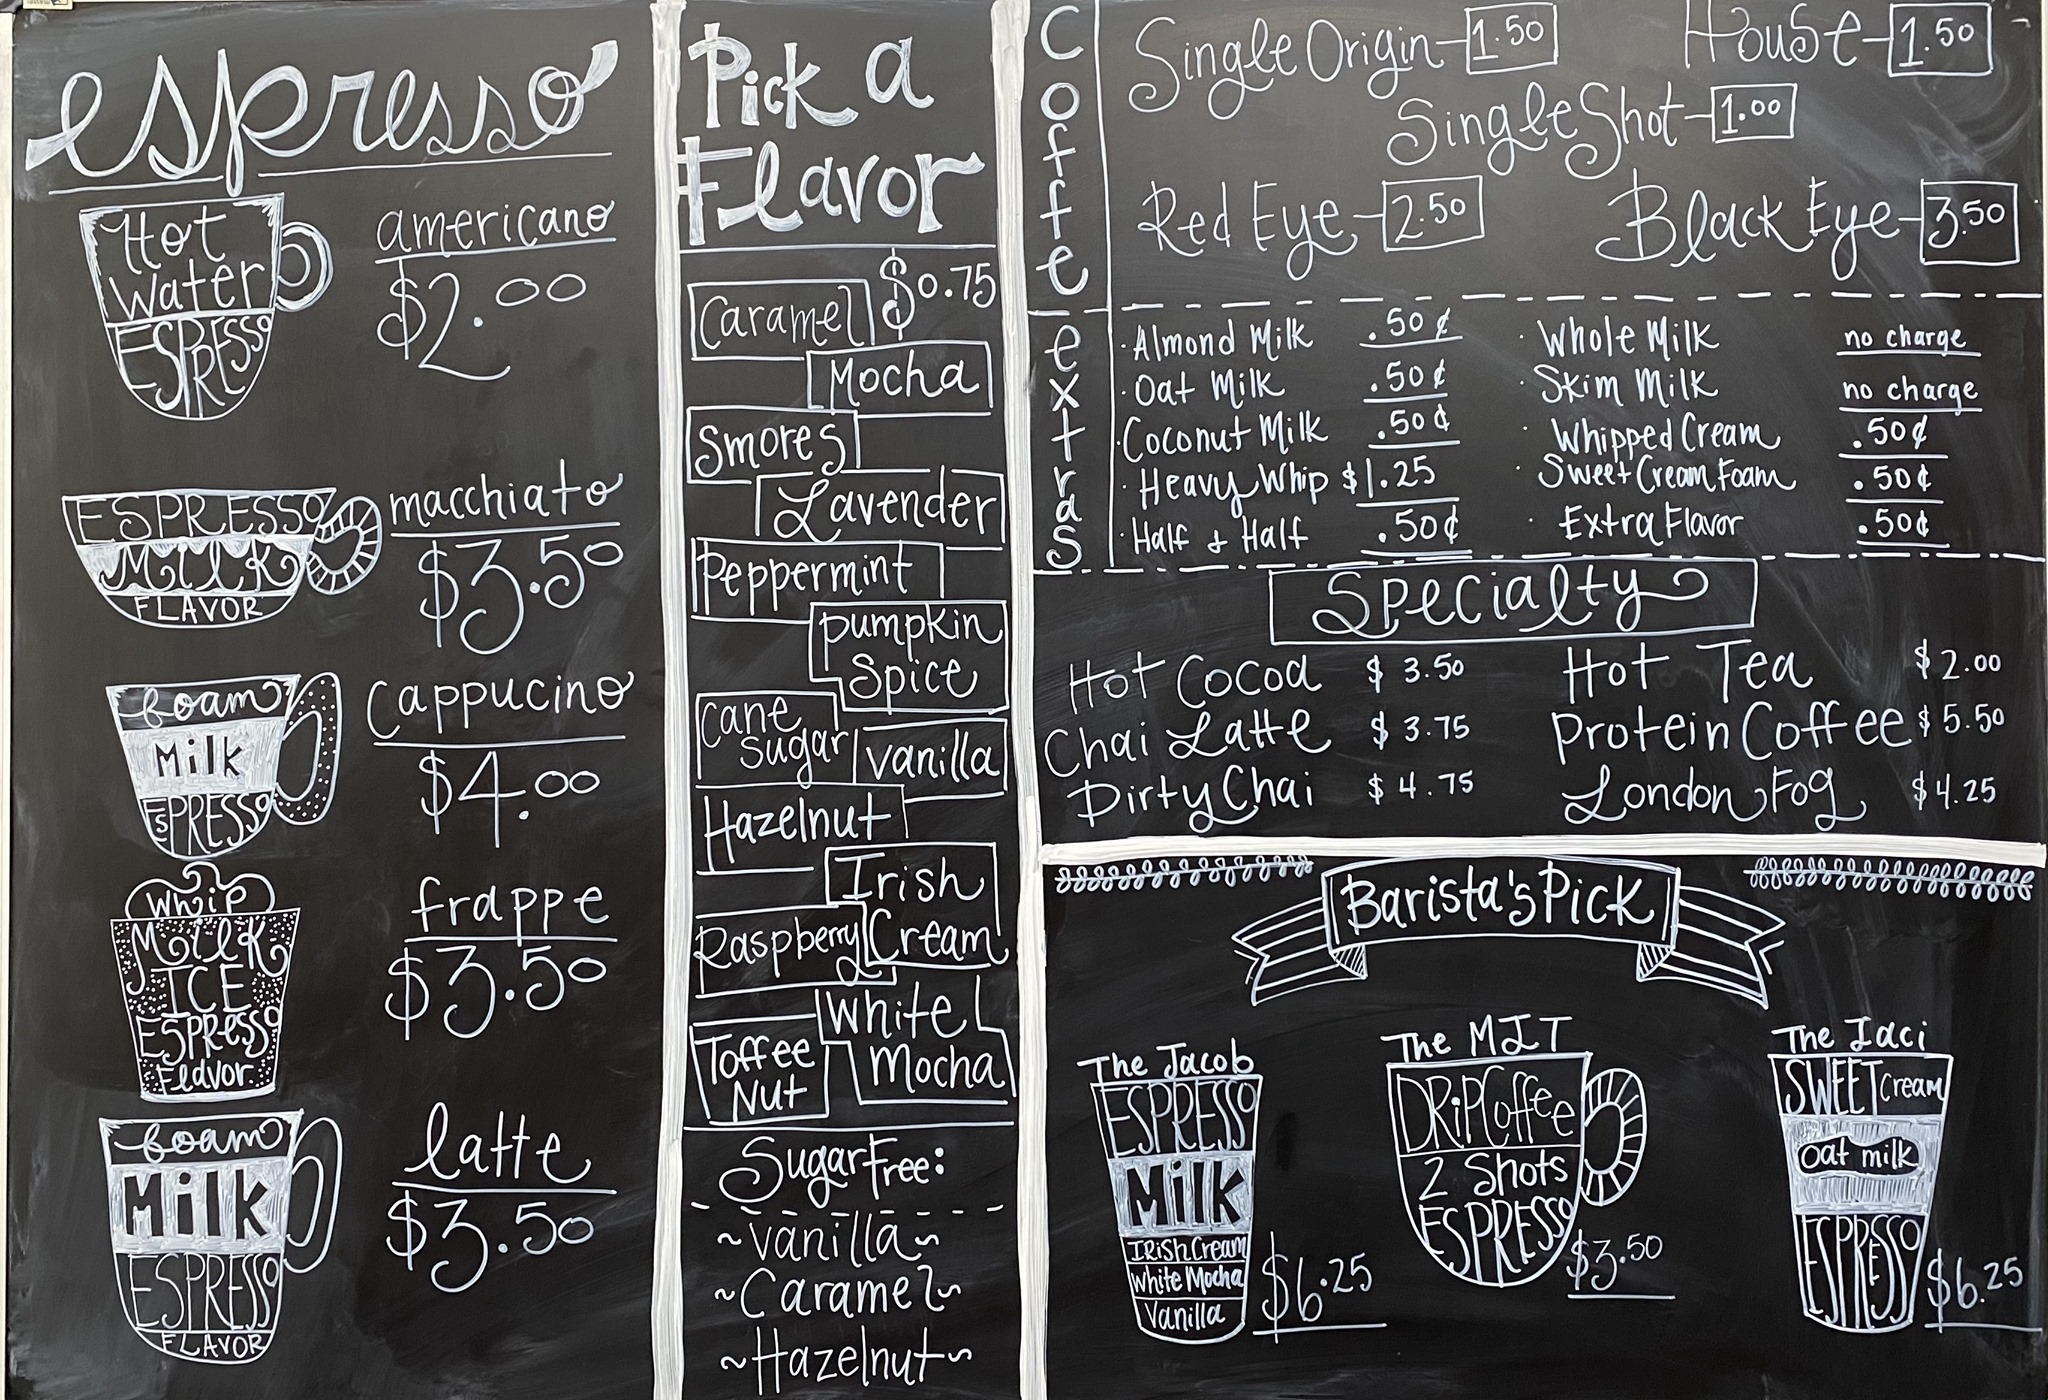 espresso
Hot
Water
ESPRESSO
americano
$2.00
ESPRESSO
Milk
FLAVOR
macchiato
$3.50
foam
Milk
ESPRESSO
cappucino
$4.00
Whip
Milk
ICE
ESPRESSO
Flavor
frappe
$3.50
foam
Milk
ESPRESSO
FLAVOR
latte
$3.50
Pick a
Flavor
$0.75
Caramel
Mocha
Smores
Lavender
Peppermint
pumpkin
Spice
Cane
Sugar
vanilla
Hazelnut
Irish
Cream
Raspberry
White
Mocha
Toffee
Nut
Sugar Free:
~Vanilla~
~Caramel~
~Hazelnut~
Coffee
Single Origin - 1.50
House - 1.50
Single Shot - 1.00
Red Eye - 2.50
Black Eye - 3.50
extras
· Almond Milk .50¢
· Oat Milk .50¢
· Coconut Milk .50¢
· Heavy Whip $1.25
· Half & Half .50¢
· Whole Milk no charge
· Skim Milk no charge
· Whipped Cream .50¢
· Sweet Cream Foam .50¢
· Extra Flavor .50¢
Specialty
Hot Cocoa $3.50
Chai Latte $3.75
Dirty Chai $4.75
Hot Tea $2.00
Protein Coffee $5.50
London Fog $4.25
Barista's Pick
The Jacob
ESPRESSO
Milk
Irish Cream
White Mocha
Vanilla
$6.25
The MIT
DRiP Coffee
2 Shots
ESPRESSO
$3.50
The Jaci
SWEET Cream
oat milk
ESPRESSO
$6.25